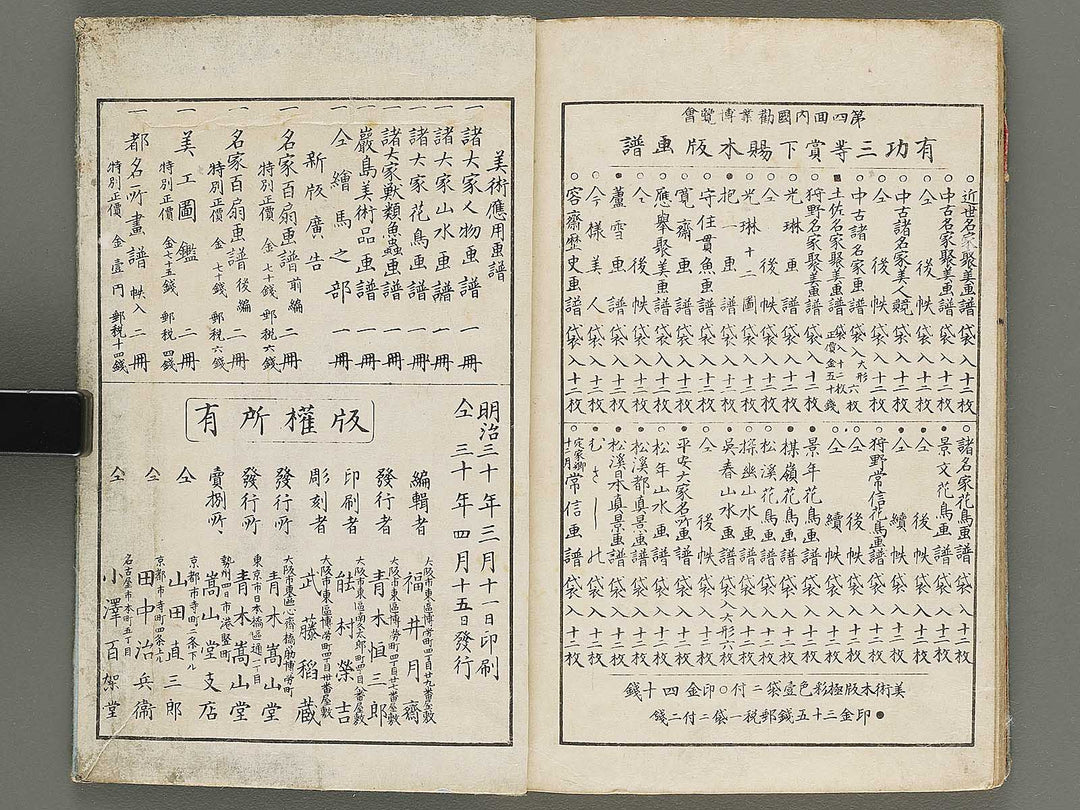 第四回内國勸業博覽會
有功三等賞下賜木版画譜
○近世名家聚美画譜 袋入十二枚
○中古名家聚美画譜 袋入十二枚
○仝 後帙 袋入十二枚
●中古諸名家美人競 袋入十二枚
○仝 後帙 袋入十二枚
○中古諸名家画譜 袋入大形六枚
■土佐名家聚美画譜 袋入十二枚 正價金五十錢
○狩野名家聚美画譜 袋入十二枚
○光琳画譜 袋入十二枚
○仝 後帙 袋入十二枚
○光琳十二圖 袋入十二枚
●把一画譜 袋入十二枚
○守住貫魚画譜 袋入十二枚
○寬齋画譜 袋入十二枚
○應舉聚美画譜 袋入十二枚
○仝 後帙 袋入十二枚
●蘆雪画譜 袋入十二枚
○今樣美人 袋入十二枚
○容齋歷史画譜 袋入十二枚
○諸名家花鳥画譜 袋入十二枚
●景文花鳥画譜 袋入十二枚
○仝 後帙 袋入十二枚
●仝 續帙 袋入十二枚
○狩野常信花鳥画譜 袋入十二枚
○仝 後帙 袋入十二枚
○仝 續帙 袋入十二枚
●景年花鳥画譜 袋入十二枚
●楳嶺花鳥画譜 袋入十二枚
●松溪花鳥画譜 袋入十二枚
○探幽山水画譜 袋入十二枚
●吳春山水画譜 袋入大形六枚
○仝 後帙 袋入十二枚
●平安大家名所画譜 袋入十二枚
○松年山水画譜 袋入十二枚
●松溪都真景画譜 袋入十二枚
●松溪日本真景画譜 袋入十二枚
○むさしの 袋入十二枚
○定家卿十二月常信画譜 袋入十二枚
美術木版極彩色壹袋ニ付○印金四十錢
●印金三十五錢郵税一袋ニ付二錢
美術應用画譜
一諸大家人物画譜 一冊
一諸大家山水画譜 一冊
一諸大家花鳥画譜 一冊
一諸大家獸類魚蟲画譜 一冊
一嚴島美術品画譜 一冊
一仝繪馬之部 一冊
新版廣告
一名家百扇画譜前編 二冊
特別正價金七十錢郵税六錢
一名家百扇画譜後編 二冊
特別正價金七十錢郵税六錢
一美工圖鑑 二冊
特別正價金七十五錢郵税四錢
一都名所畫譜帙入 二冊
特別正價金壹円郵税十四錢
版權所有
明治三十年三月十一日印刷
仝 三十年四月十五日發行
大阪市東區博労町四丁目廿九番屋敷
編輯者 福井月齋
大阪市東區博労町四丁目廿七番屋敷
發行者 青木恒三郎
大阪市東區南久太郎町四丁目八番屋敷
印刷者 能村榮吉
大阪市東區博労町四丁目廿番屋敷
彫刻者 武藤稻藏
大阪市東區心齋橋筋博労町
發行所 青木嵩山堂
東京市日本橋區通一丁目
發行所 青木嵩山堂
勢州四日市港竪町
賣捌所 嵩山堂支店
京都市寺町二条下ル
仝 山田直三郎
京都市寺町四条上ル
仝 田中治兵衛
名古屋市本町五丁目
仝 小澤百架堂